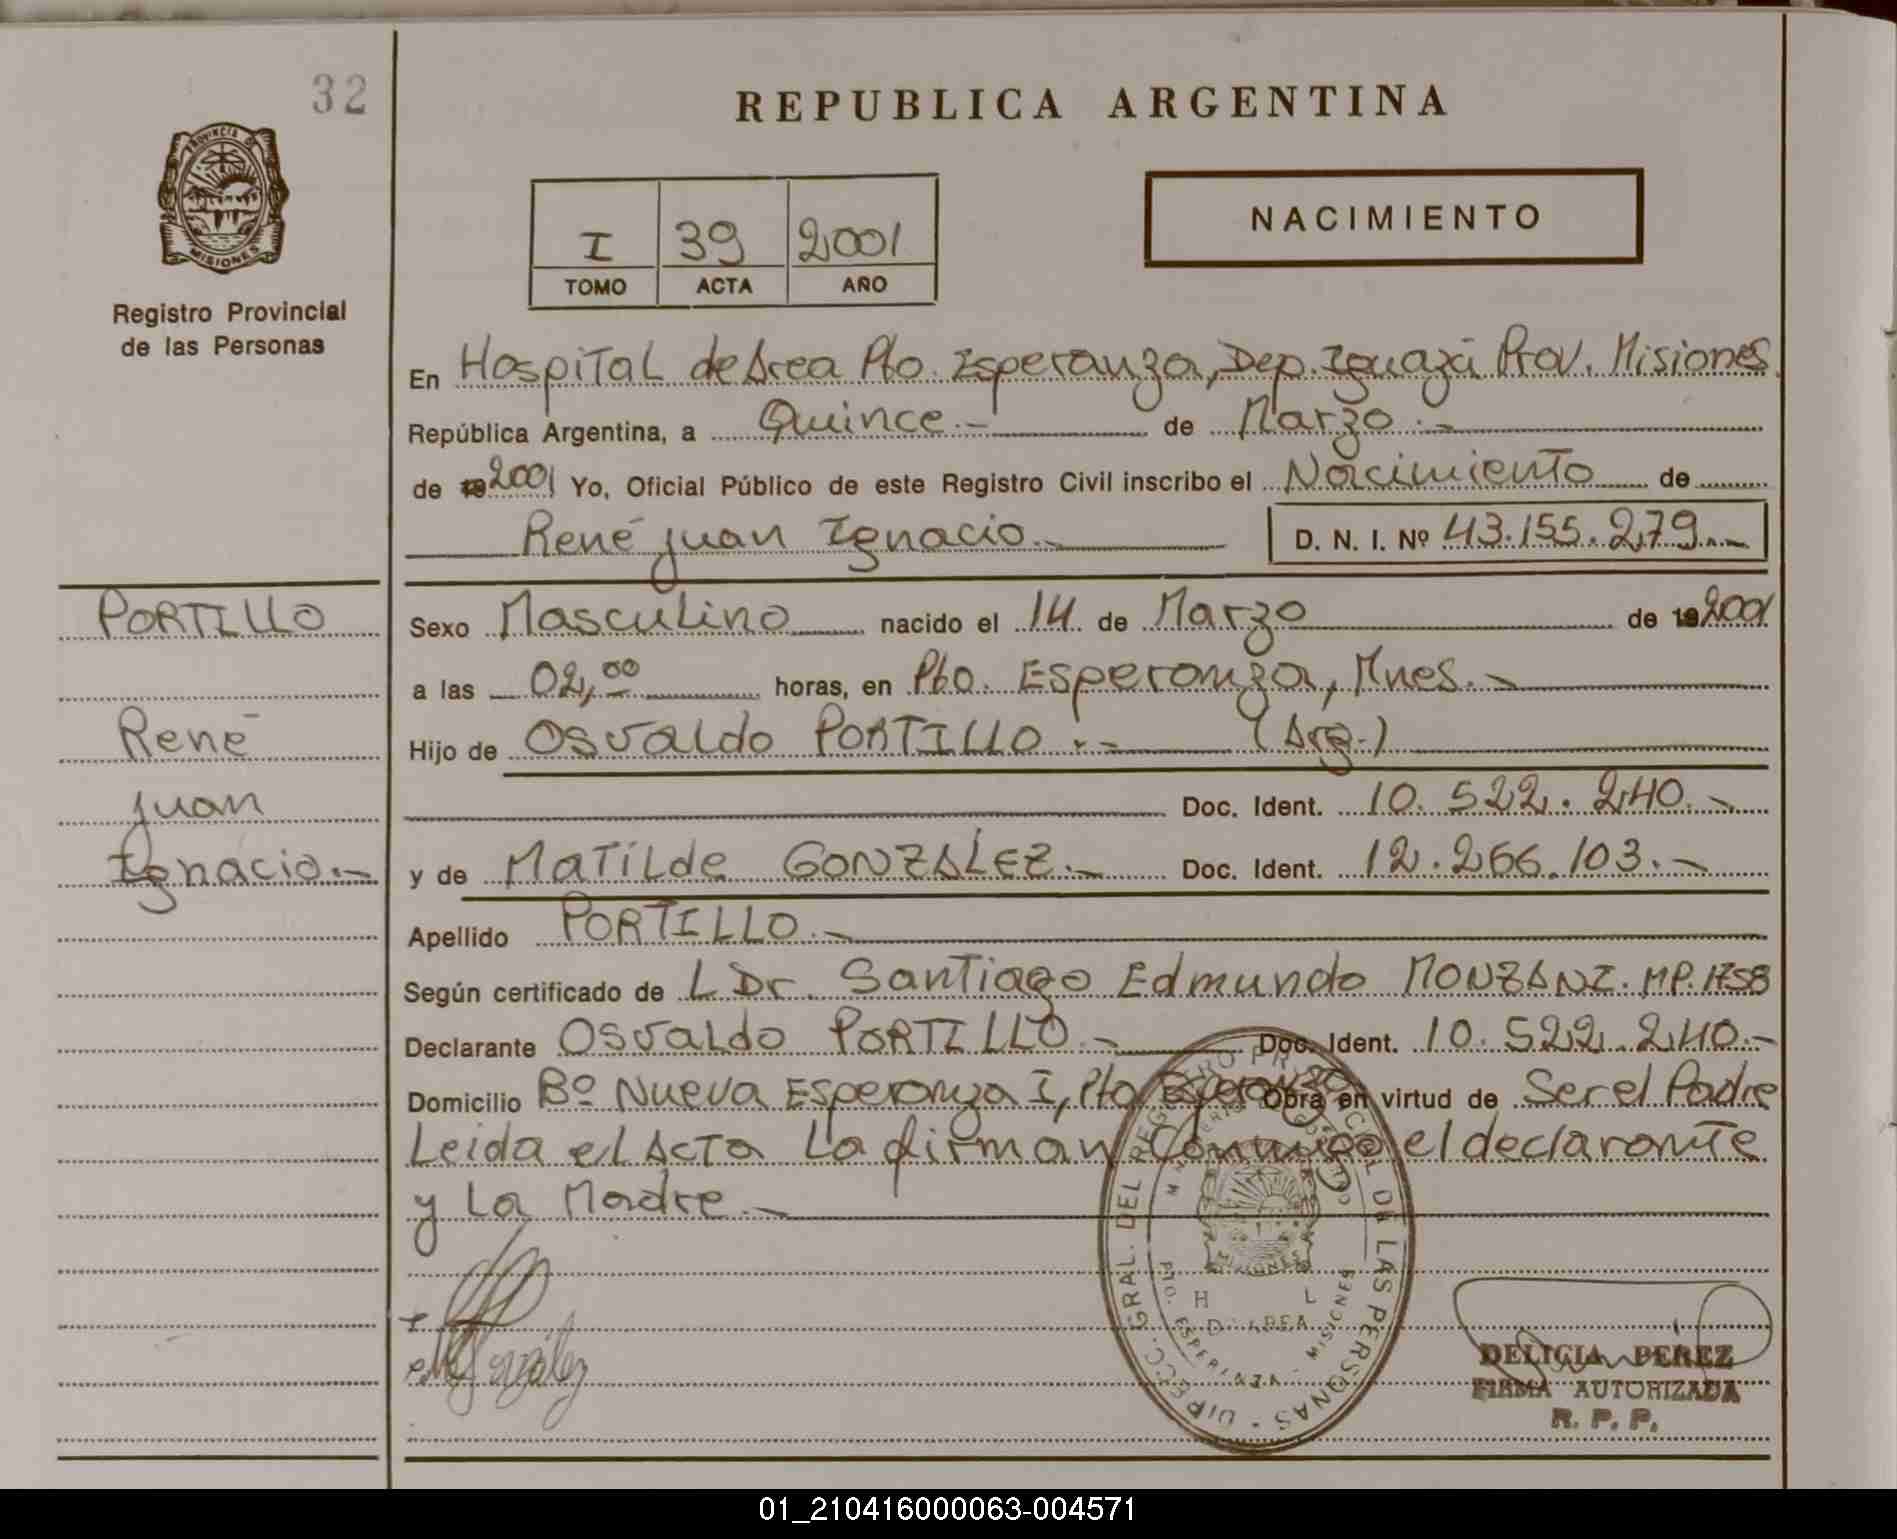 32
REPUBLICA ARGENTINA
PROVINCIA DE
MISIONES
Registro Provincial
de las Personas
I 39 2001
TOMO ACTA AÑO
NACIMIENTO
En Hospital de Area Pto. Esperanza, Dep. Iguazú Prov. Misiones
República Argentina, a Quince.- de Marzo.-
de 192001 Yo, Oficial Público de este Registro Civil inscribo el Nacimiento de
René Juan Ignacio.- D. N. I. Nº 43.155.279.-
PORTILLO
René
Juan
Ignacio.-
Sexo Masculino nacido el 14 de Marzo de 192001
a las 02,00 horas, en Pto. Esperanza, Mnes.-
Hijo de Osvaldo PORTILLO.- (Arg.)
Doc. Ident. 10.522.240.-
y de Matilde GONZALEZ.- Doc. Ident. 12.266.103.-
Apellido PORTILLO.-
Según certificado de L Dr. Santiago Edmundo MONZANI. MP. 1758
Declarante Osvaldo PORTILLO.- Doc. Ident. 10.522.240.-
Domicilio Bº Nueva Esperanza I, Pto Esperanza Obra en virtud de Ser el Padre
Leida el Acta La firman Conmigo el declarante
y La Madre.-
DIRECC. GRAL. DEL REGISTRO PROVINCIAL DE LAS PERSONAS
PTO. ESPERANZA - MISIONES
DELICIA PEREZ
FIRMA AUTORIZADA
R. P. P.
01_210416000063-004571